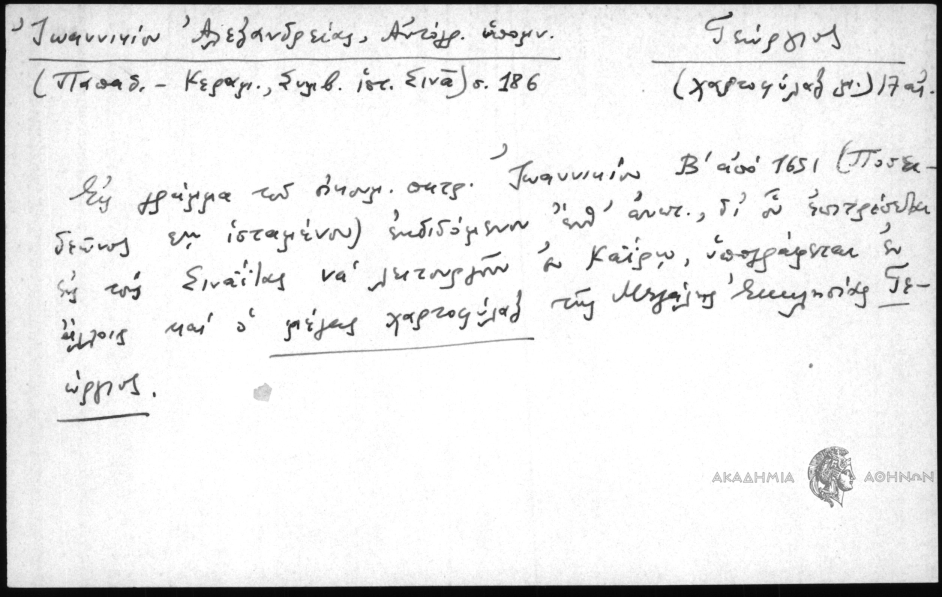 Ἰωαννικίου Ἀλεξανδρείας, Αὐτόγρ. ὑπομν. Γεώργιος
(Παπαδ. - Κεραμ., Συμβ. ἱστ. Σινᾶ) σ. 186 (χαρτοφύλαξ μ.) 17 αἰ.
Εἰς γράμμα τοῦ οἰκουμ. πατρ. Ἰωαννικίου Β' ἀπό 1651 (Ποσει-
δεῶνος ἱσταμένου) ἐκδιδόμενον ἐνθ' ἀνωτ., δι' οὗ ἐπιτρέπεται
εἰς τούς Σιναΐτας νά λειτουργοῦν ἐν Καΐρῳ, ὑπογράφεται ἐν
ἄλλοις καί ὁ μέγας χαρτοφύλαξ τῆς Μεγάλης Ἐκκλησίας Γε-
ώργιος.
ΑΚΑΔΗΜΙΑ ΑΘΗΝΩΝ